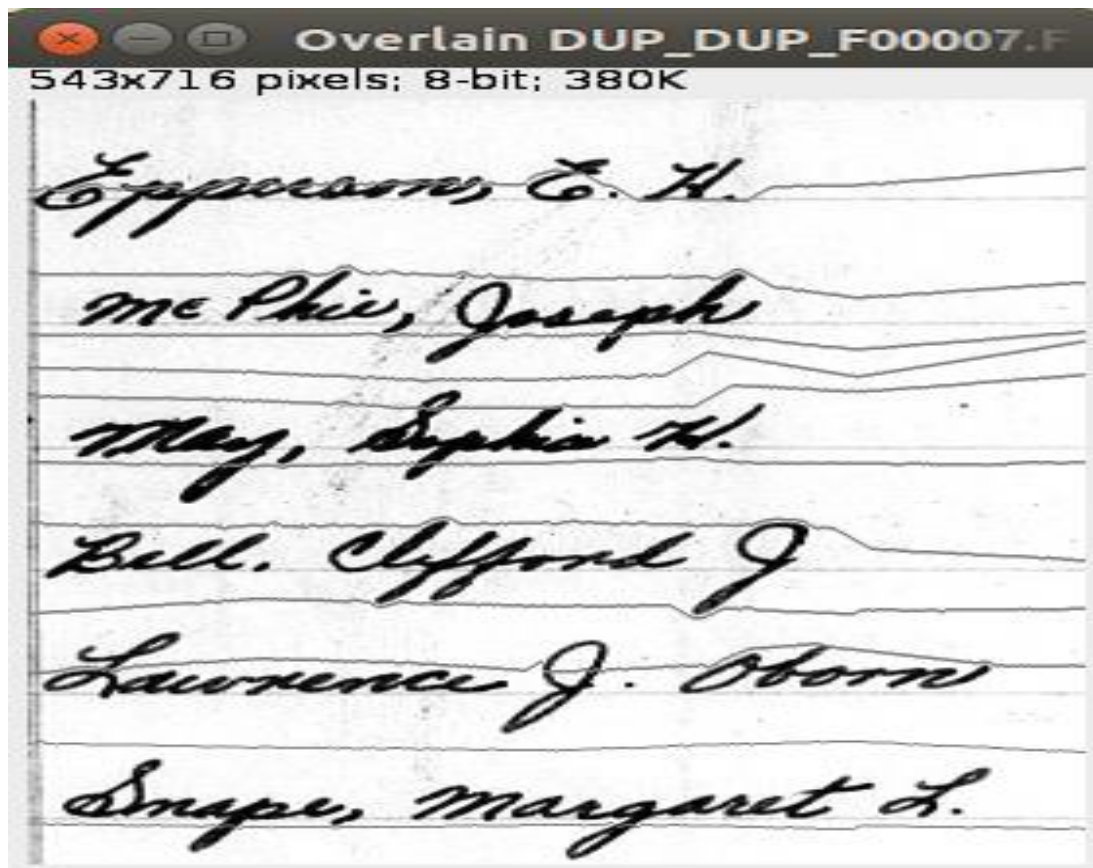 Overlain DUP_DUP_F00007.F
543x716 pixels; 8-bit; 380K
Epperson, E. H.
McPhie, Joseph
May, Sophia H.
Bell. Clifford J
Lawrence J. Oborn
Snape, Margaret L.